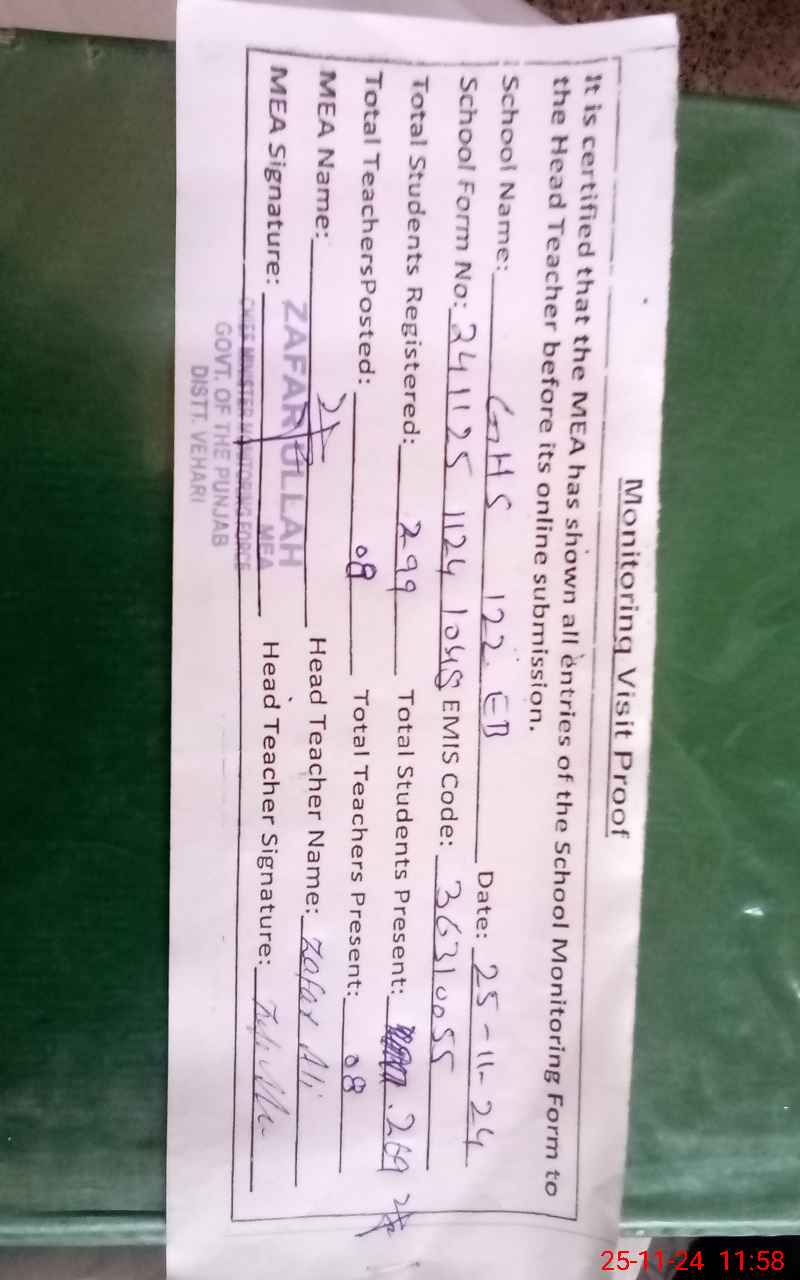 Monitoring Visit Proof
It is certified that the MEA has shown all entries of the School Monitoring Form to
the Head Teacher before its online submission.
School Name: GHS 122 EB Date: 25-11-24
School Form No: 241125 1124 1048 EMIS Code: 36310055
Total Students Registered: 299 Total Students Present: 269
Total TeachersPosted: 08 Total Teachers Present: 08
MEA Name: ZAFAR ULLAH Head Teacher Name: Zafar Ali
MEA Signature: MEA Head Teacher Signature:
CHIEF MINISTER MONITORING FORCE
GOVT. OF THE PUNJAB
DISTT. VEHARI
25-11-24 11:58